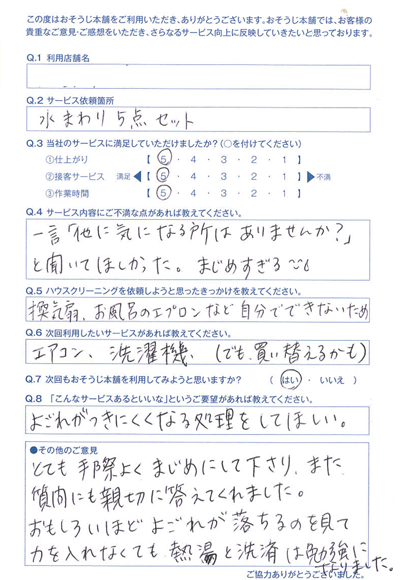 この度はおそうじ本舗をご利用いただき、ありがとうございます。おそうじ本舗では、お客様の
貴重なご意見・ご感想をいただき、さらなるサービス向上に反映していきたいと思っております。
Q.1 利用店舗名
Q.2 サービス依頼箇所
水まわり5点セット
Q.3 当社のサービスに満足していただけましたか?(○を付けてください)
①仕上がり 【 5 ・ 4 ・ 3 ・ 2 ・ 1 】
②接客サービス 満足 ◀【 5 ・ 4 ・ 3 ・ 2 ・ 1 】▶ 不満
③作業時間 【 5 ・ 4 ・ 3 ・ 2 ・ 1 】
Q.4 サービス内容にご不満な点があれば教えてください。
一言「他に気になる所はありませんか?」
と聞いてほしかった。まじめすぎる
Q.5 ハウスクリーニングを依頼しようと思ったきっかけを教えてください。
換気扇、お風呂のエプロンなど自分でできないため
Q.6 次回利用したいサービスがあれば教えてください。
エアコン、洗濯機、(でも、買い替えるかも)
Q.7 次回もおそうじ本舗を利用してみようと思いますか? ( はい ・ いいえ )
Q.8 「こんなサービスあるといいな」というご要望があれば教えてください。
よごれがつきにくくなる処理をしてほしい。
●その他のご意見
とても手際よくまじめにして下さり、また
質問にも親切に答えてくれました。
おもしろいほどよごれが落ちるのを見て
力を入れなくても熱湯と洗済は勉強に
なりました。
ご協力ありがとうございました。